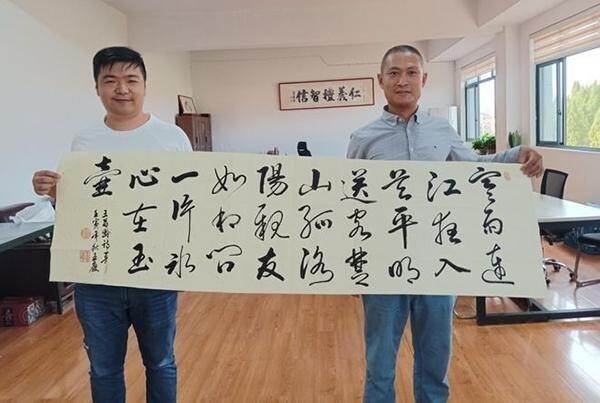 仁義禮智信
寒雨連
江夜入
吴平明
送客楚
山孤洛
陽親友
如相問
一片冰
心在玉
壺
王昌齡詩
壬寅年秋